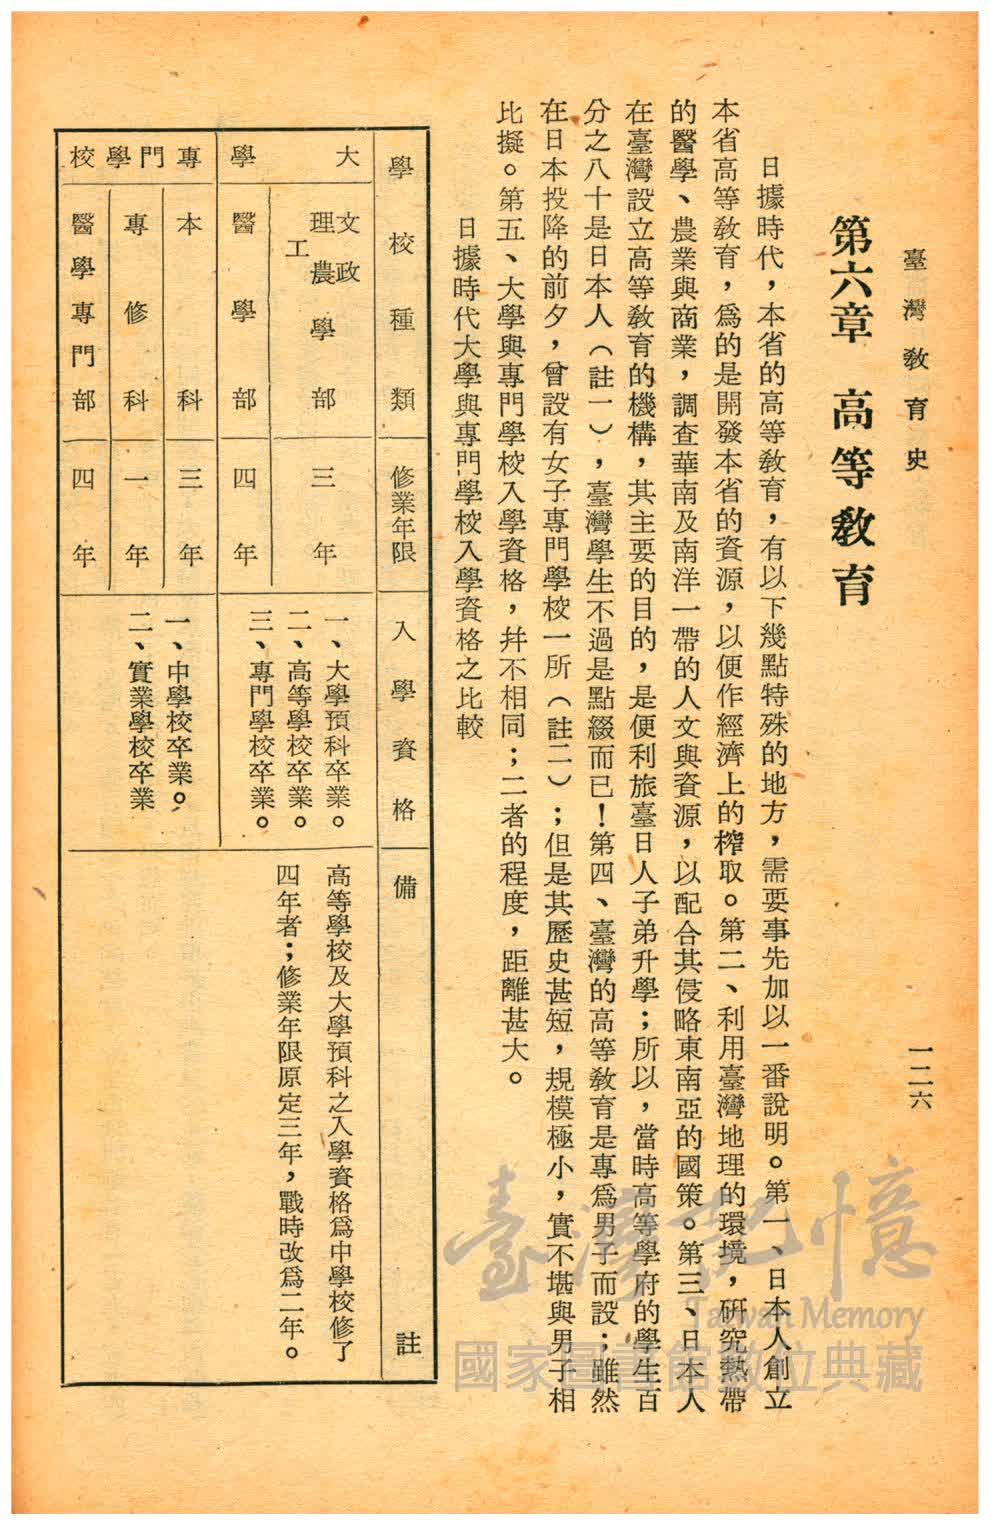 臺灣教育史
一二六
第六章　高等教育
日據時代，本省的高等教育，有以下幾點特殊的地方，需要事先加以一番說明。第一、日本人創立
本省高等教育，爲的是開發本省的資源，以便作經濟上的榨取。第二、利用臺灣地理的環境，研究熱帶
的醫學、農業與商業，調查華南及南洋一帶的人文與資源，以配合其侵略東南亞的國策。第三、日本人
在臺灣設立高等教育的機構，其主要的目的，是便利旅臺日人子弟升學；所以，當時高等學府的學生百
分之八十是日本人（註一），臺灣學生不過是點綴而已！第四、臺灣的高等教育是專爲男子而設；雖然
在日本投降的前夕，曾設有女子專門學校一所（註二）；但是其歷史甚短，規模極小，實不堪與男子相
比擬。第五、大學與專門學校入學資格，幷不相同；二者的程度，距離甚大。
日據時代大學與專門學校入學資格之比較
學校種類
修業年限
入學資格
備註
大學
文政理農工學部
三年
醫學部
四年
一、大學預科卒業。
二、高等學校卒業。
三、專門學校卒業。
高等學校及大學預科之入學資格爲中學校修了
四年者；修業年限原定三年，戰時改爲二年。
專門學校
本科
三年
專修科
一年
醫學專門部
四年
一、中學校卒業。
二、實業學校卒業
臺灣記憶
Taiwan Memory
國家圖書館數位典藏